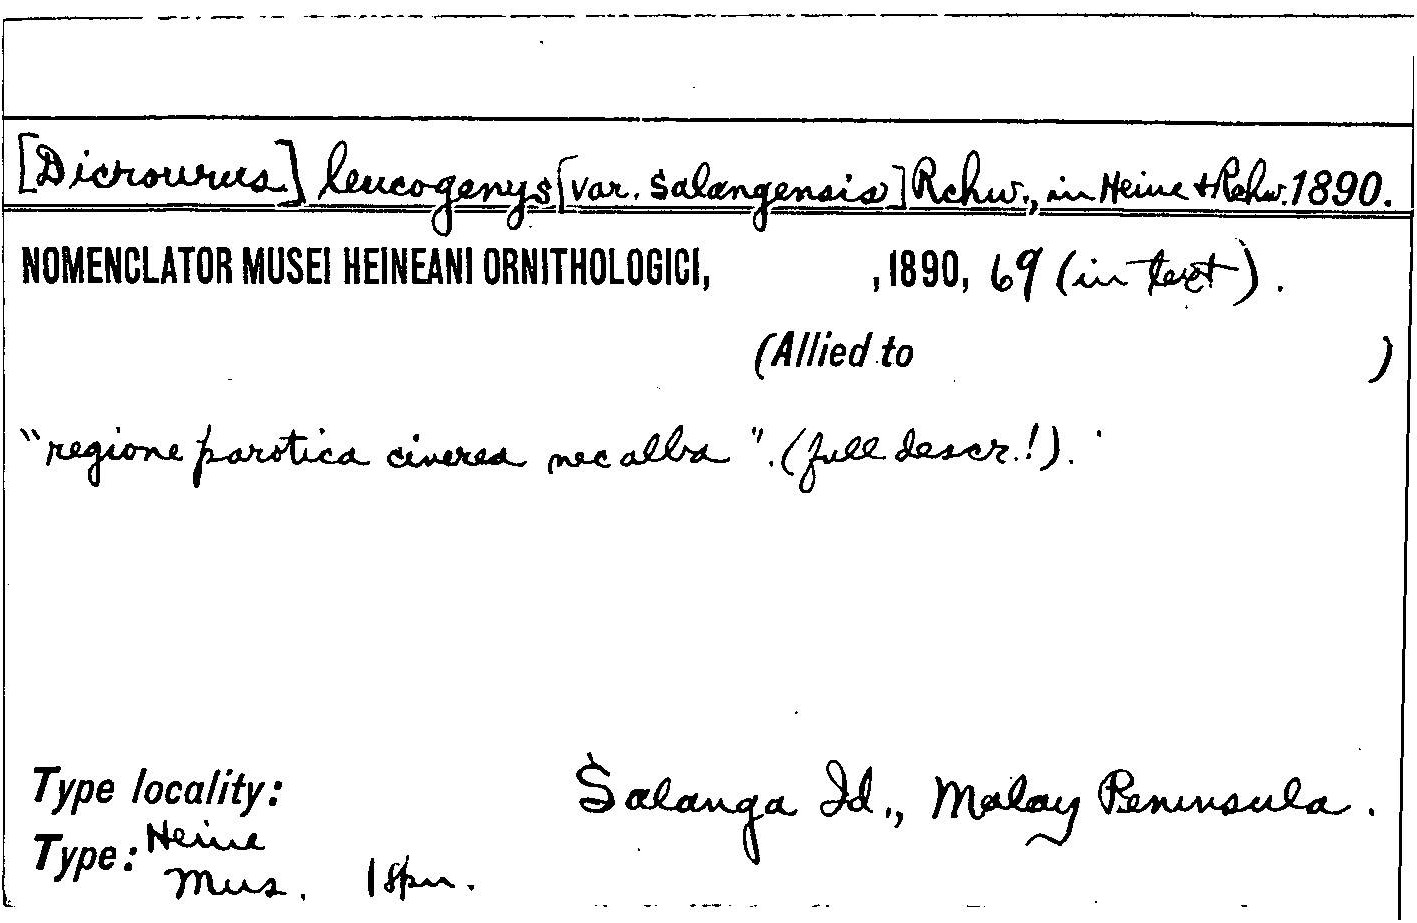 [Dicrourus] leucogenys [var. salangensis] Rchw., in Heine & Rchw. 1890.
NOMENCLATOR MUSEI HEINEANI ORNITHOLOGICI, , 1890, 69 (in text).
(Allied to )
"regione parotica cinerea nec alba". (full descr.!).
Type locality: Salanga Id., Malay Peninsula.
Type: Heine
Mus. 1 spn.